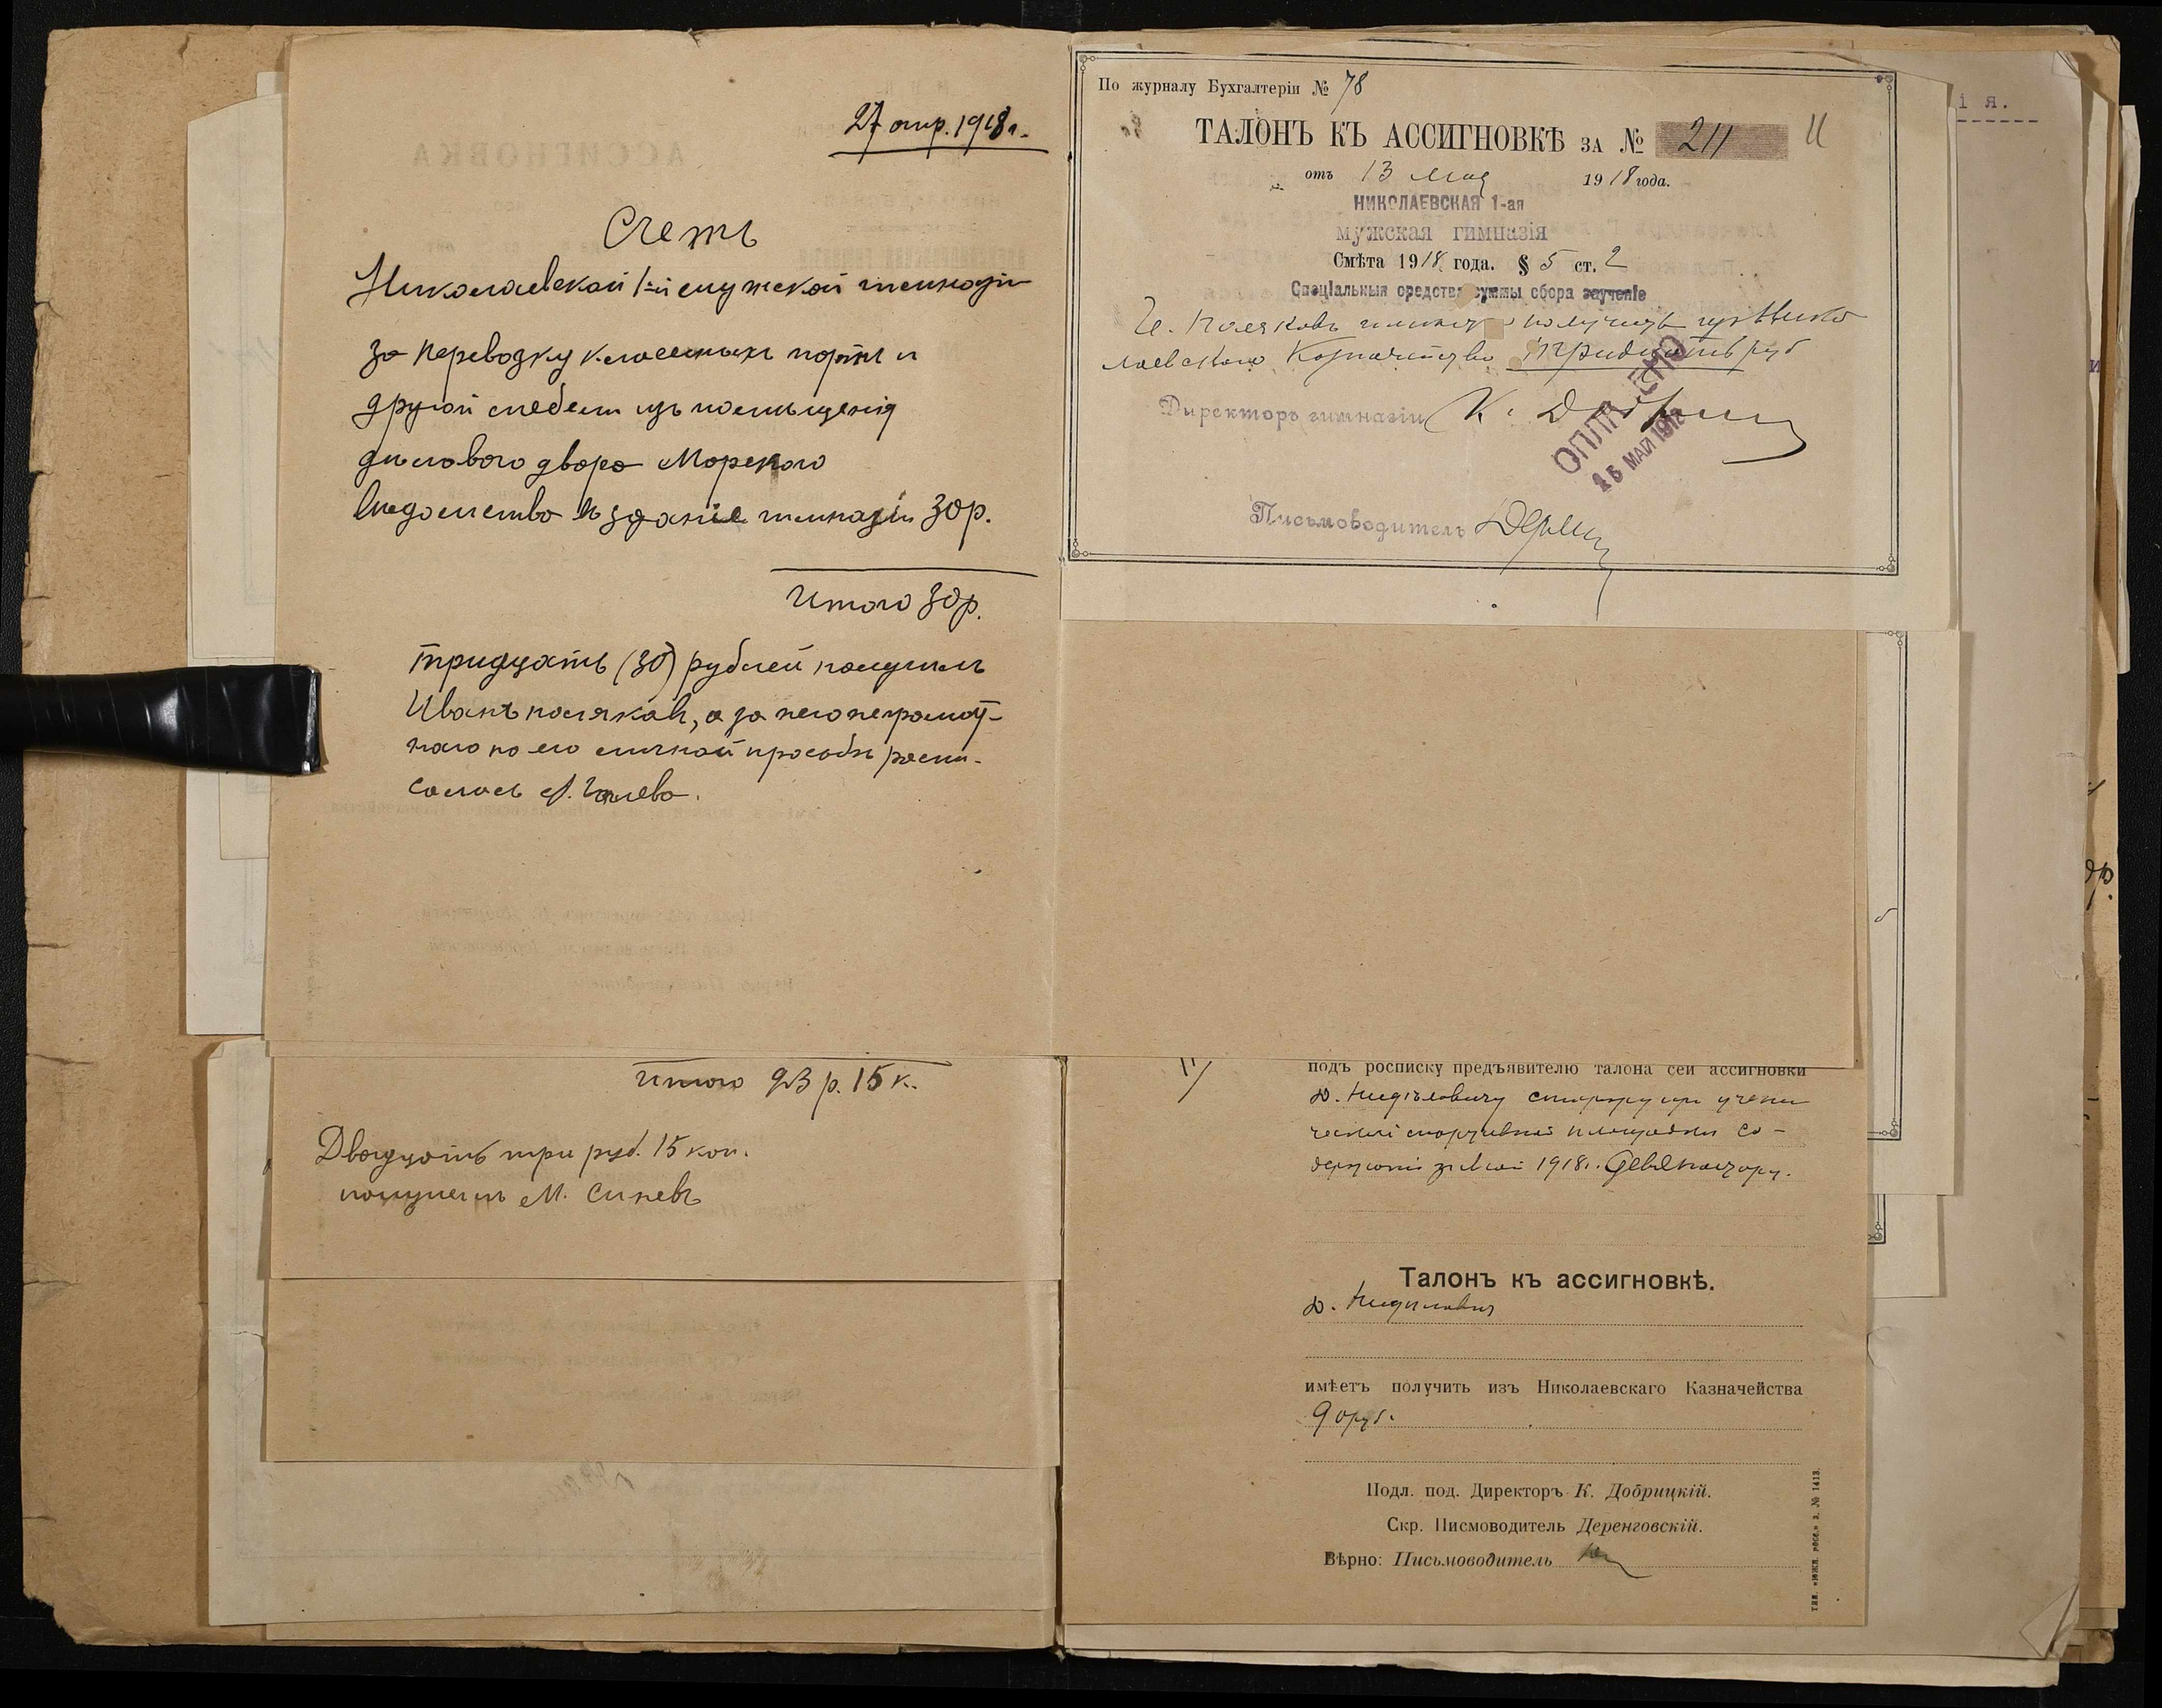 27 апр. 1918 г.
Счетъ
Николаевской 1-й мужской гимназіи
за перевозку классныхъ партъ и
другой мебели изъ помѣщенія
дѣлового двора Морского
Вѣдомства въ зданіе гимназіи 30 р.
Итого 30 р.
тридцать (30) рублей получилъ
Иванъ Поляковъ, а за него неграмот-
наго по его личной просьбѣ распи-
сался
Итого 23 р. 15 к.
Двадцать три руб. 15 коп.
получилъ М. Синевъ
По журналу Бухгалтеріи № 78
ТАЛОНЪ КЪ АССИГНОВКѢ ЗА № 211
отъ 13 мая 1918 года.
НИКОЛАЕВСКАЯ 1-ая
мужская гимназія
Смѣта 1918 года. § 5 ст. 2
Спеціальныя средства суммы сбора за ученіе
И. Поляковъ имѣетъ получить изъ Нико
лаевского Казначейства тридцать руб
Директоръ гимназіи К. Д
ОПЛАЧЕНО
15 МАЙ 1918
Письмоводитель
подъ росписку предъявителю талона сей ассигновки
сторожу при учени
ческой спортивной площадки со-
держаніе за Май 1918 г. девяносто ру.
Талонъ къ ассигновкѣ.
имѣетъ получить изъ Николаевскаго Казначейства
90 руб.
Подл. под. Директоръ К. Добрицкій.
Скр. Писмоводитель Деренговскій.
Вѣрно: Письмоводитель